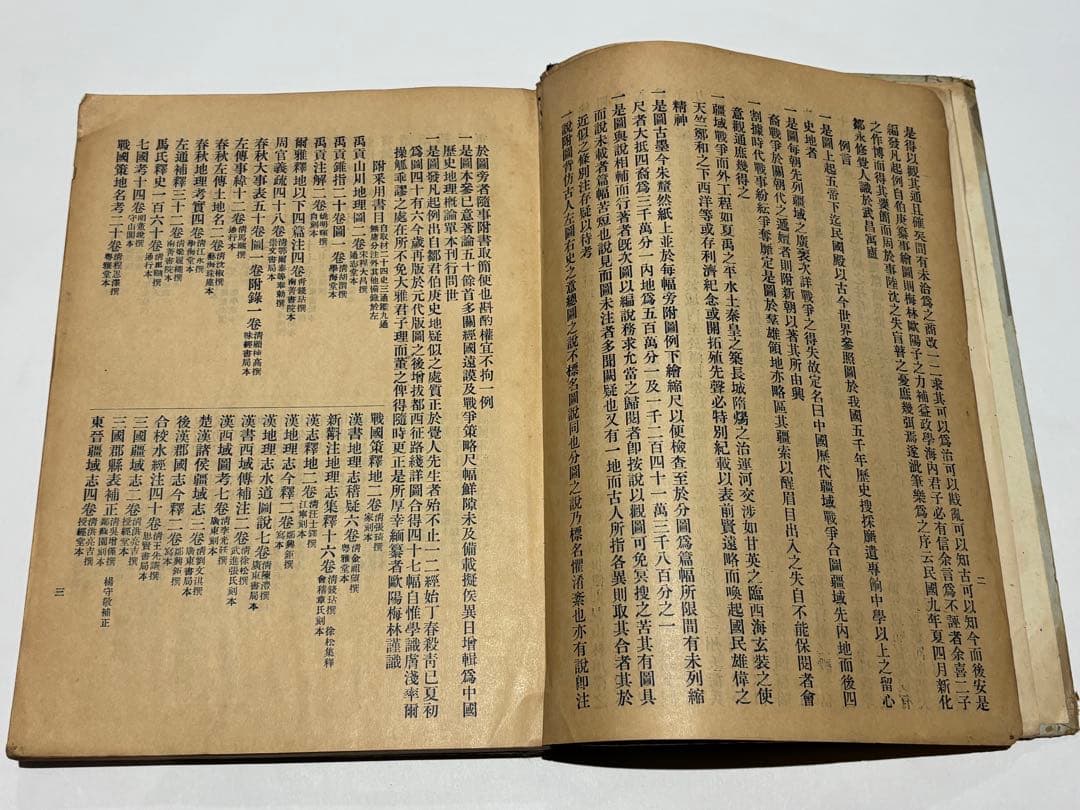 二
是得以觀其通且確矣間有未洽爲之酌改一二求其可以爲治可以戡亂可以知古可以知今而後安是
編發凡起例自伯庚纂事繪圖則梅林歐陽子之力補益政學海內君子必有信余言爲不誣者余喜二子
之作博而得其要簡而周於事陸沈之失盲瞽之憂庶幾弭焉遂泚筆樂爲之序云民國九年夏四月新化
鄒永修覺人識於武昌寓廬
例言
一是圖上起五帝下迄民國殿以古今世界參照圖於我國五千年歷史搜採靡遺專餉中學以上之留心
史地者
一是圖每朝先列疆域之廣袤次詳戰爭之得失故定名曰中國歷代疆域戰爭合圖疆域先內地而後四
裔戰爭於關朝代之遞嬗者則附新朝以著其所由興
一割據時代戰事紛紜爭奪靡定是圖於羣雄領地亦略區其疆索以醒眉目出入之失自不能保閱者會
意觀通庶幾得之
一疆域戰爭而外工程如夏禹之平水土秦皇之築長城隋煬之治運河交涉如甘英之臨西海玄裝之使
天竺鄭和之下西洋等或存利濟紀念或開拓殖先聲必特別紀載以表前賢遠略而喚起國民雄偉之
精神
一是圖古墨今朱釐然紙上並於每幅旁附圖例下繪縮尺以便檢查至於分圖爲篇幅所限間有未列縮
尺者大抵四裔爲三千萬分一內地爲五百萬分一及一千二百四十一萬三千八百分之一
一是圖與說相輔而行著者旣次圖以編說務求允當之歸閱者卽按說以觀圖可免冥搜之苦其有圖具
而說未載者篇幅苦短也說見而圖未注者多聞闕疑也又有一地而古人所指各異則取其合者其於
近似之條別注存疑以待考
一說附圖背仿古人左圖右史之意總圖之說不標名圖說同也分圖之說乃標名懼淆紊也亦有說卽注
於圖旁者隨事附書取簡便也斟酌權宜不拘一例
一是圖本參已意著論五十餘首多關經國遠謨及戰爭策略尺幅鮮隙未及備載擬俟異日增輯爲中國
歷史地理概論單本刊行問世
一是圖發凡起例出自鄒君伯庚史地疑似之處質正於覺人先生者殆不止一二經始丁春殺青已夏初
爲圖四十有六今歲再版於元代版圖之後增拔都西征路綫詳圖合得四十七幅自惟學識膚淺率爾
操觚乖謬之處在所不免大雅君子理而董之俾得隨時更正是所厚幸緬纂者歐陽梅林謹識
附采用書目 自取材二十四史三通鑑九通無庸分注外其他備錄於左
禹貢山川地理圖二卷 宋程大昌撰 通志堂本
禹貢錐指二十卷圖一卷 清胡渭撰 學海堂本
禹貢注解二卷 姚明煇撰 自刻本
爾雅釋地以下四篇注四卷 清錢坫撰 南菁書院本
周官義疏四十八卷 清鄂爾泰等奉勅撰 崇文書局本
春秋大事表五十卷圖一卷附錄一卷 清顧棟高撰 味經書局本
左傳事緯十二卷 清馬驌撰 通行本
春秋左傳地名二卷 清沈淑撰 藝海珠塵本
春秋地理考實四卷 清江永撰 學海堂本
左通補釋三十二卷 清梁履繩撰 南菁書院本
馬氏釋史一百六十卷 清馬驌撰 通行本
七國考十四卷 明董說撰 守山閣本
戰國策地名考二十卷 清程恩澤撰 粵雅堂本
戰國策釋地二卷 清張琦撰 家刻本
漢書地理志稽疑六卷 清全祖望撰 粵雅堂本
新斠注地理志集釋十六卷 清錢坫撰 徐松集釋 會稽章氏刻本
漢志釋地二卷 清汪士鐸撰 江寧刻本
漢地理志今釋二卷 鄒興鉅撰 寫本
漢地理志水道圖說七卷 清陳澧撰 廣東書局本
漢書西域傳補注二卷 清徐松撰 武進張氏刻本
漢西域圖考七卷 清李光廷撰 廣東刻本
楚漢諸侯疆域志三卷 清劉文淇撰 廣東書局本
後漢郡國志今釋二卷 鄒興鉅撰 寫本
合校水經注四十卷 清王先謙撰 思賢書局本
三國疆域志二卷 清洪亮吉撰 授經堂本
三國郡縣表補正 清吳增僅撰 楊守敬補正 鄰蘇園刻本
東晉疆域志四卷 清洪亮吉撰 授經堂本
三